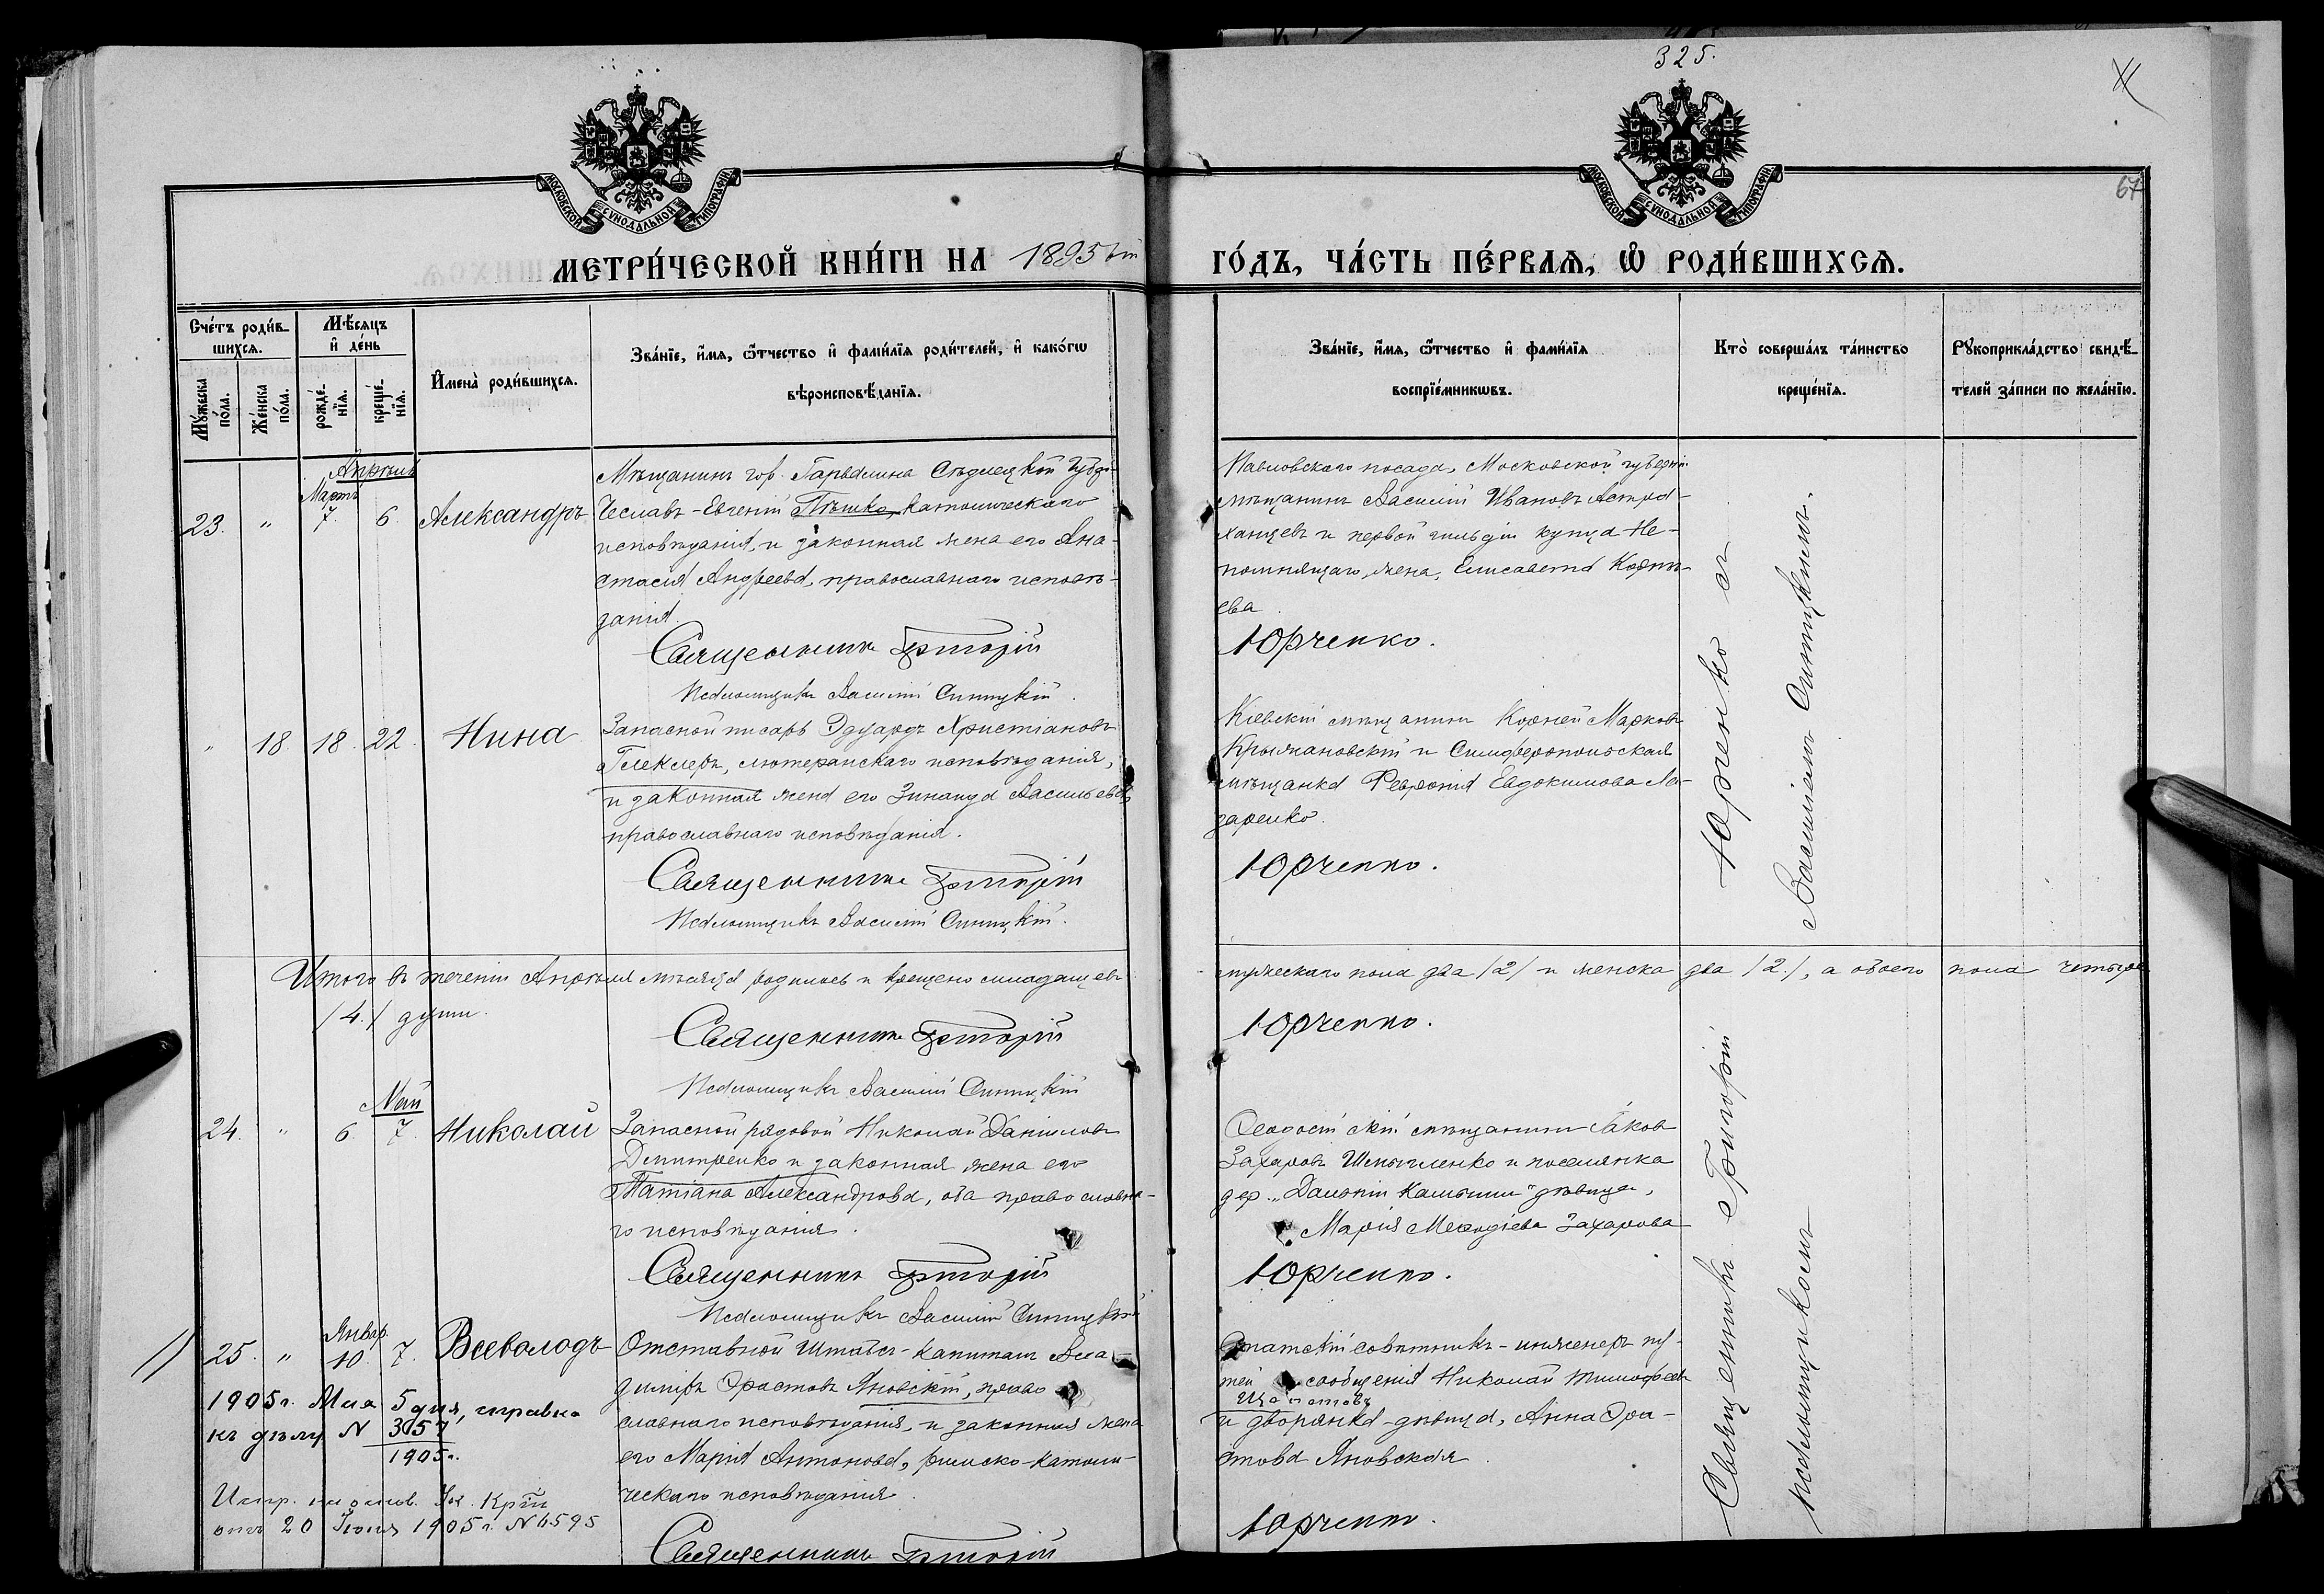 325.
67
МОСКОВСКОЙ СУНОДАЛЬНОЙ ТИПОГРАФІИ
МОСКОВСКОЙ СУНОДАЛЬНОЙ ТИПОГРАФІИ
МЕТРИ́ЧЕСКОЙ КНИ́ГИ НА 1895
ГО́ДЪ, ЧА́СТЬ ПЕ́РВАЯ, Ѡ РОДИ́ВШИХСЯ.
Сче́тъ роди́в-
шихся.
Му́жеска по́ла.
Же́нска по́ла.
Мѣ́сяцъ
и де́нь
рожде́-
нїя.
креще́-
нїя.
Имена̀ роди́вшихся.
Зва́нїе, и́мя, ѻ҆́тчество и фами́лїя роди́телей, и како́гѡ
вѣроисповѣ́данїя.
Зва́нїе, и́мя, ѻ҆́тчество и фами́лїя
воспрїе́мникѡвъ.
Кто̀ соверша́лъ та́инство
креще́нїя.
Рукоприкла́дство свидѣ́-
телей за́писи по жела́нїю.
Апрѣль
Мартъ
23. " 7. 6. Александръ
Мѣщанинъ гор. Гарволина Сѣдлецкой Губер-
Чеславъ-Евгеній Пѣшко, католическаго
исповѣданія, и законная жена его Ана-
стасія Андреева, православнаго исповѣ-
данія.
Священникъ Григорій
Псаломщикъ Василій Синицкій.
Павловскаго посада, Московской губерніи
мѣщанинъ Василій Ивановъ Астра-
ханцевъ и первой гильдіи купца Не-
помнящаго, жена, Елисавета Корнѣ-
ева.
Юрченко.
" 18 18. 22. Нина
Запасной писарь Эдуардъ Христіановъ
Геклеръ, лютеранскаго исповѣданія,
и законная жена его Зинаида Васильева
православнаго исповѣданія.
Священникъ Григорій
Псаломщикъ Василій Синицкій.
Кіевскій мѣщанинъ Корней Марковъ
Крыжановскій и Симферопольская
мѣщанка Февронія Евдокимова Ла-
заренко.
Юрченко.
Итого въ теченіи Апрѣля мѣсяца родилось и крещено младенцевъ
мужескаго пола два /2/ и женска два /2./, а обоего пола четыре
/4./ души.
Священникъ Григорій
Юрченко.
Псаломщикъ Василій Синицкій
Май
24. " 6. 7. Николай
Запасной рядовой Николай Даніиловъ
Дмитренко и законная жена его
Татіана Александрова, оба православна-
го исповѣданія.
Священникъ Григорій
Псаломщикъ Василій Синицкій
Ѳеодосійскій мѣщанинъ Іаковъ
Захаровъ и поселянка
дер. „Дальніи Камыши" дѣвица,
Марія Меѳодіева Захарова
Юрченко.
Январ.
25. " 10. 7. Всеволодъ
Отставной Штабсъ-Капитанъ Вла-
диміръ Эрастовъ Яновскій, право
славнаго исповѣданія, и законная жена
его Марія Антонова, римско-католи-
ческаго исповѣданія.
Священникъ Григорій
1905г. Мая 5 дня, справка
къ дѣлу N 3057
1905г.
Испр. на основ. Ук.
отъ 20 Іюня 1905 г. N 4595
Статскій совѣтникъ-инженеръ пу-
тей сообщенія Николай Тимофеевъ
Щаповъ
и дворянка-дѣвица, Анна Эра-
стова Яновская.
Юрченко.
Священникъ Григорій Юрченко съ
псаломщикомъ Василіемъ Синицкимъ.